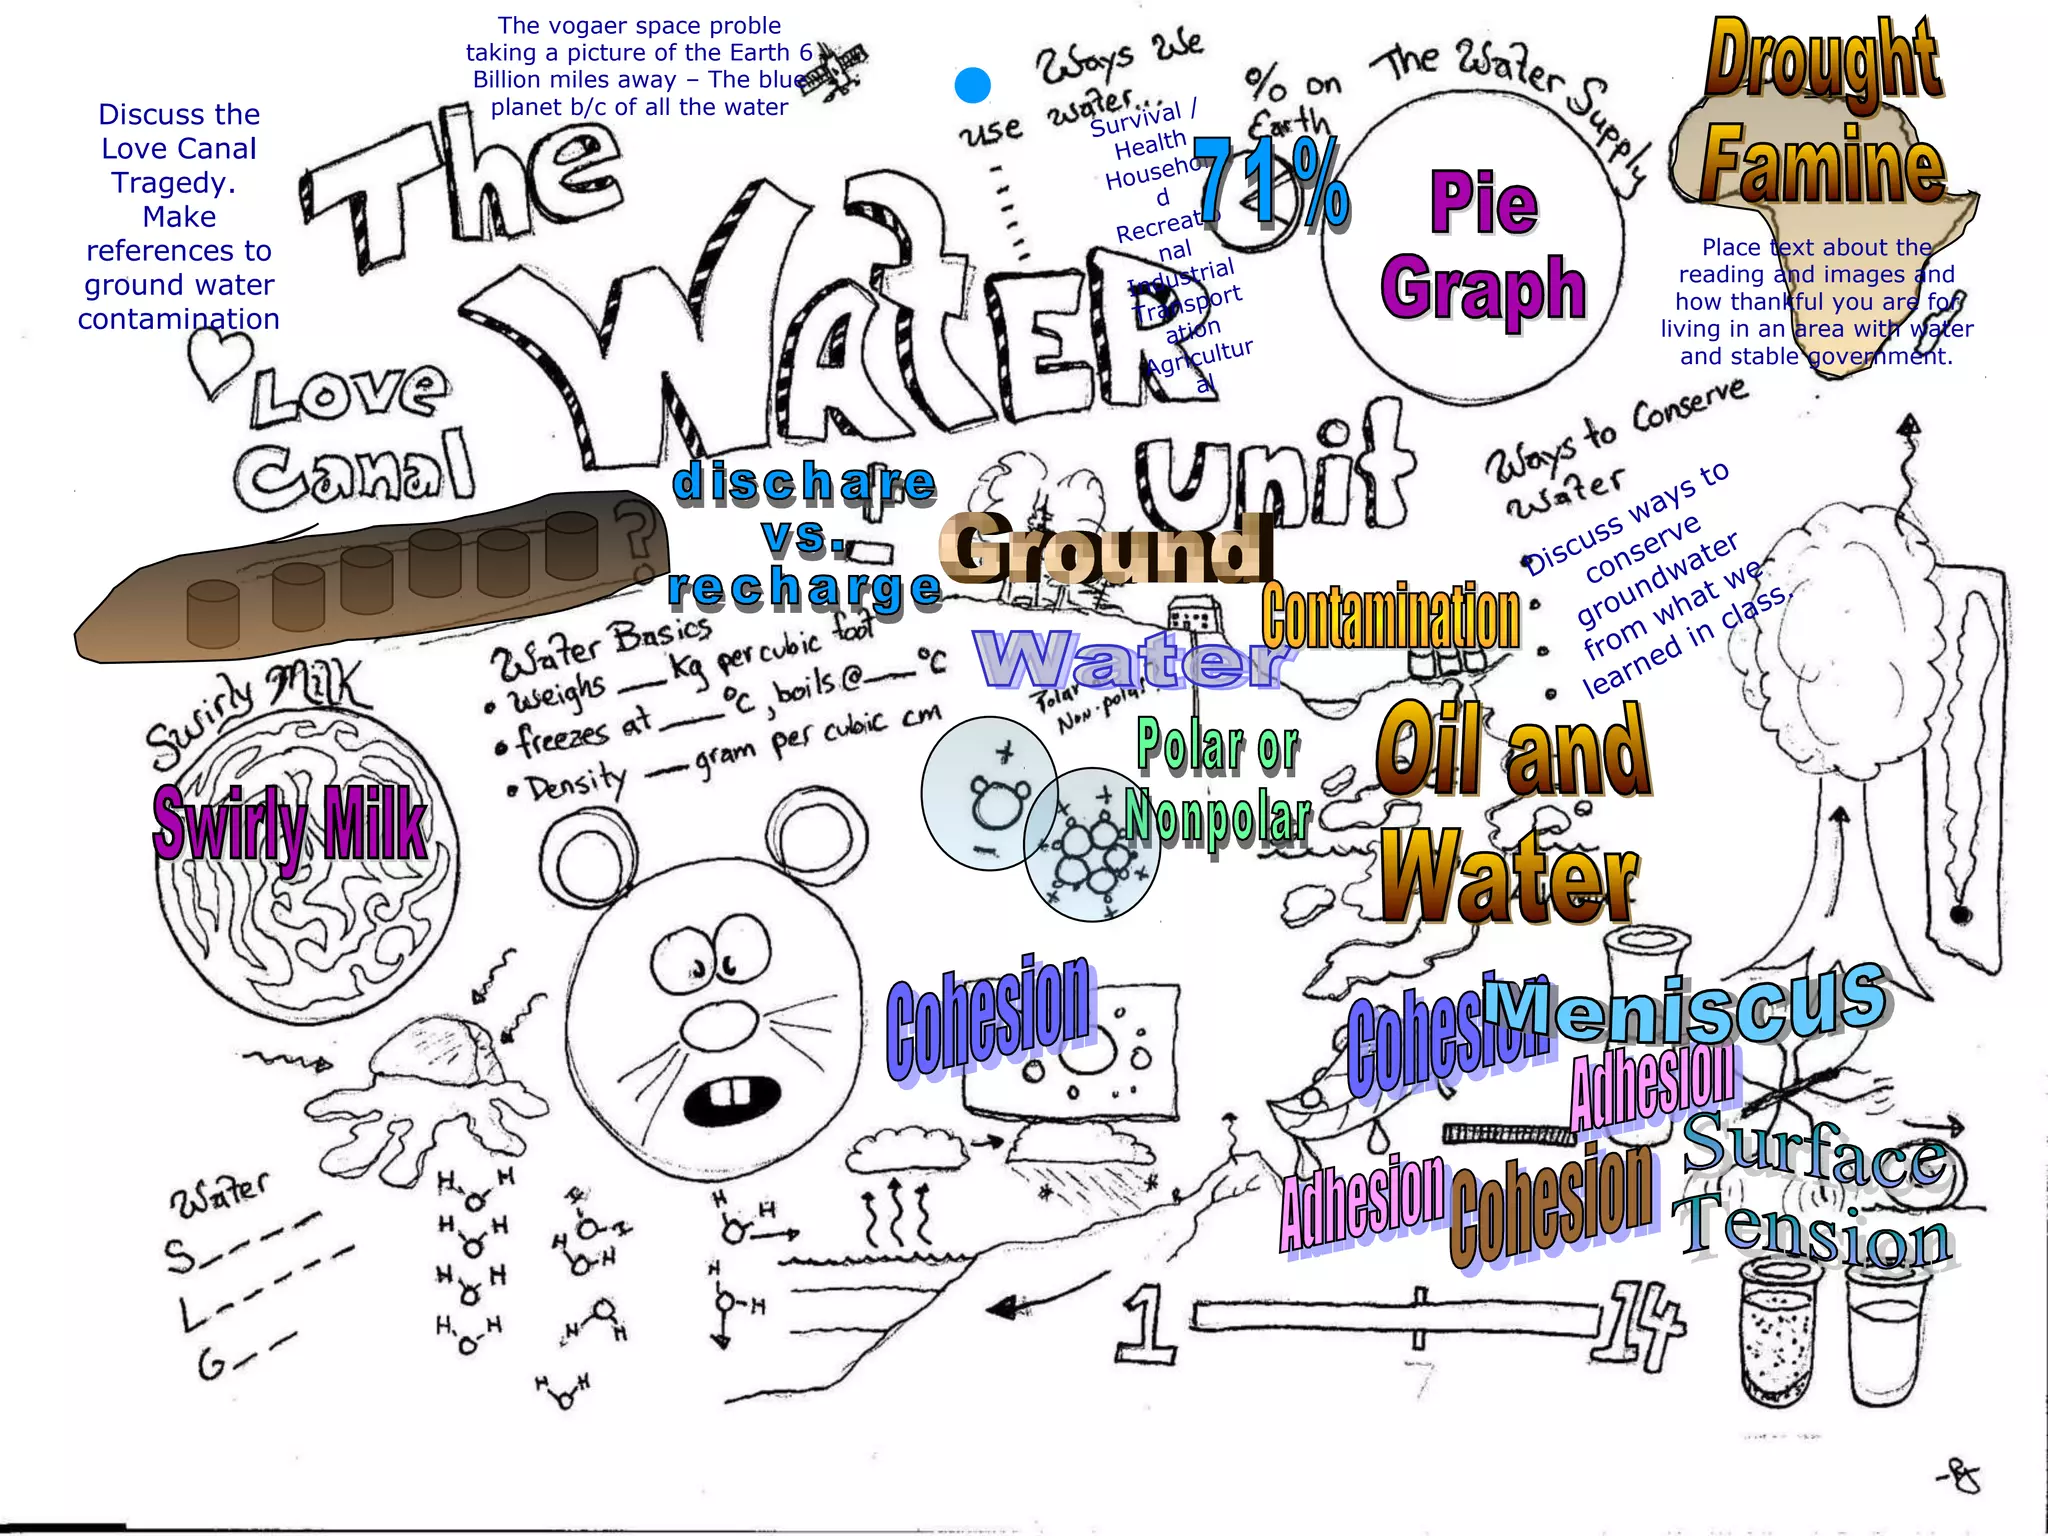 The vogaer space proble
taking a picture of the Earth 6
Billion miles away – The blue
planet b/c of all the water
Discuss the
Love Canal
Tragedy.
Make
references to
ground water
contamination
The
Water
Unit
Ways We
use water...
Survival /
Health
Househol
d
Recreatio
nal
Industrial
Transport
ation
Agricultur
al
% on
Earth
71%
The Water Supply
Pie
Graph
Drought
Famine
Place text about the
reading and images and
how thankful you are for
living in an area with water
and stable government.
Love
Canal
?
dischare
vs.
recharge
Ground
Water
Contamination
Ways to Conserve
Water
Discuss ways to
conserve
groundwater
from what we
learned in class.
Swirly Milk
Swirly Milk
Water Basics
• weighs __ kg per cubic foot
• freezes at __ °C, boils @ __ °C
• Density __ gram per cubic cm
Polar
Non-polar
Polar or
Nonpolar
+
–
Oil and
Water
Cohesion
Cohesion
Meniscus
Adhesion
Surface
Tension
Adhesion
Cohesion
Water
S_ _ _ _ _
L_ _ _ _ _
G_ _
H O H
H O H
H O H
H O H
H O H
H O H
H O H
H O H
H O H
H O H
1
14
7